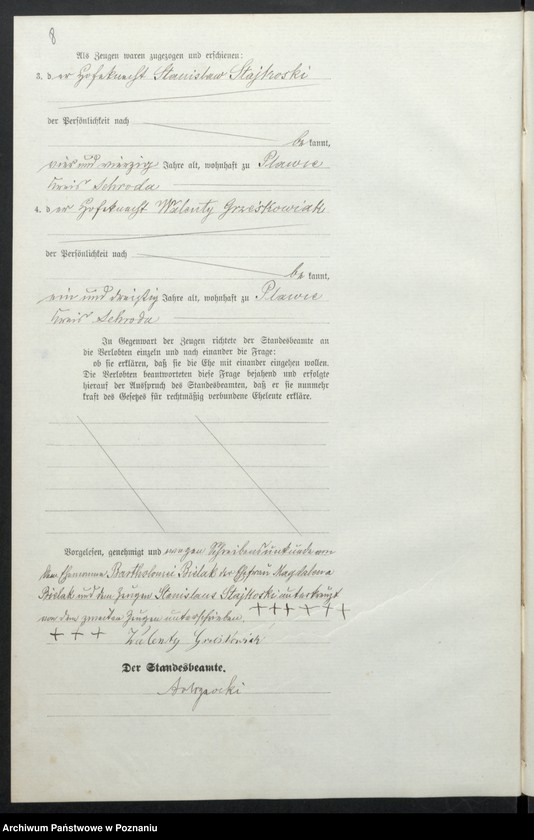 8
Als Zeugen waren zugezogen und erschienen:
3. der Hofeknecht Stanislaw Stajkoski
der Persönlichkeit nach
be kannt,
vier und vierzig Jahre alt, wohnhaft zu Plawce
Kreis Schroda
4. der Hofeknecht Walenty Grześkowiak
der Persönlichkeit nach
be kannt,
ein und dreißig Jahre alt, wohnhaft zu Plawce
Kreis Schroda
In Gegenwart der Zeugen richtete der Standesbeamte an
die Verlobten einzeln und nach einander die Frage:
ob sie erklären, daß sie die Ehe mit einander eingehen wollen.
Die Verlobten beantworteten diese Frage bejahend und erfolgte
hierauf der Ausspruch des Standesbeamten, daß er sie nunmehr
kraft des Gesetzes für rechtmäßig verbundene Eheleute erkläre.
Vorgelesen, genehmigt und wegen Schreibensunkunde von
dem Ehemanne Bartholomei Bielak der Ehefrau Magdalena
Bielak und dem Zeugen Stanislaus Stajkoski unterkreuzt
von dem zweiten Zeugen unterschrieben. + + + + + +
+ + + Walenty
Der Standesbeamte.
Archiwum Państwowe w Poznaniu